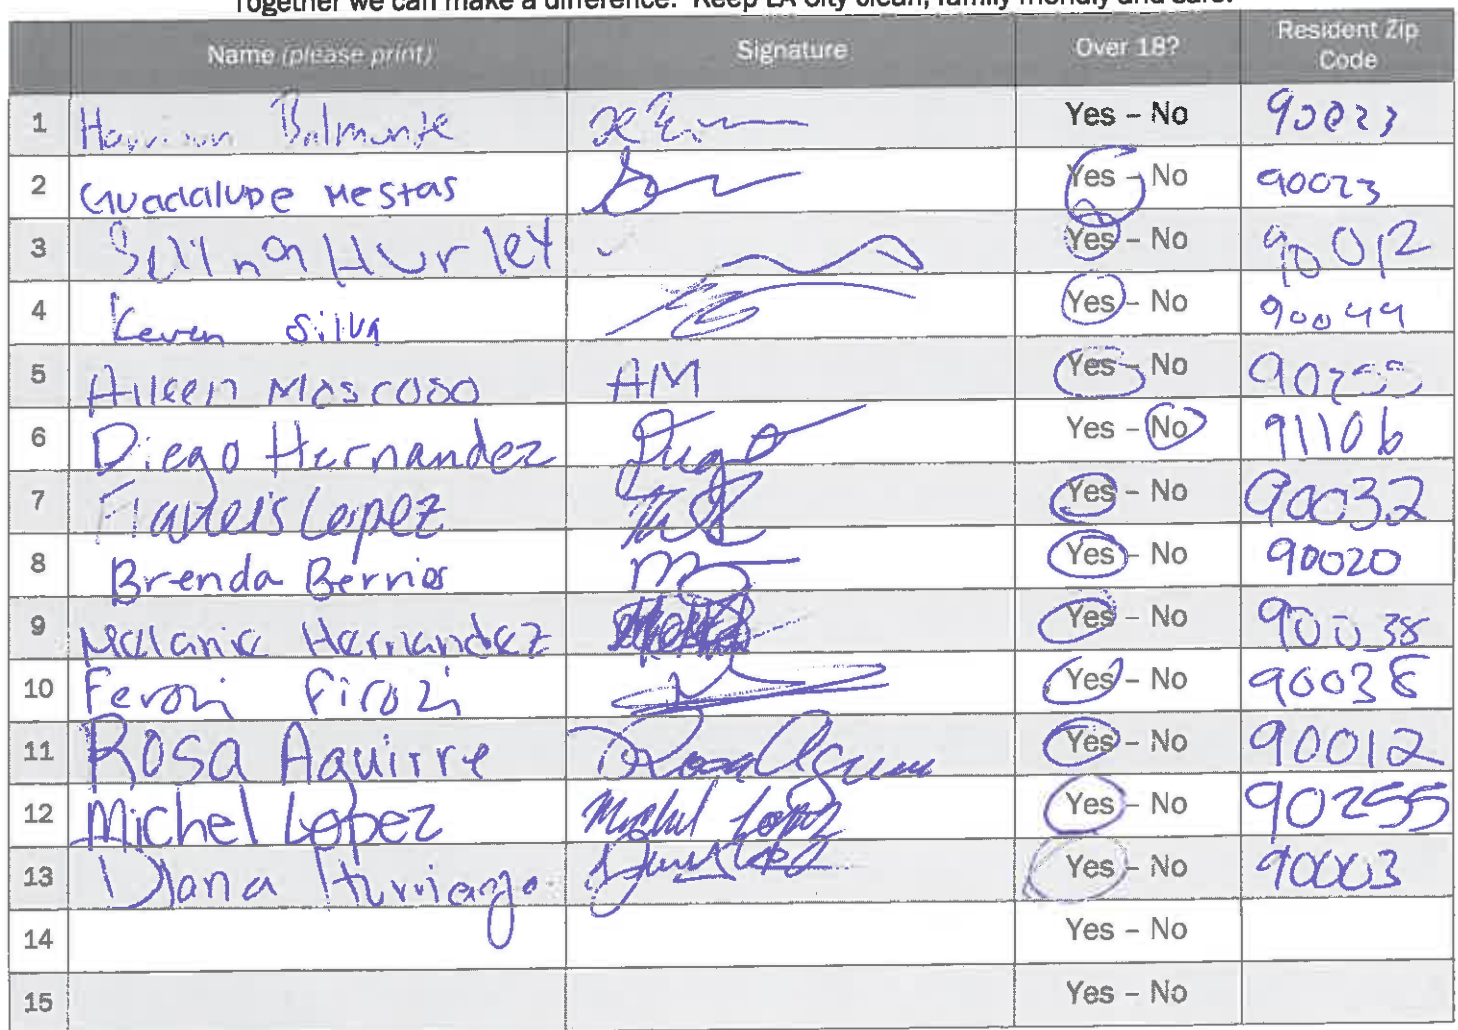 Together we can make a difference. Keep LA City clean, family friendly and safe.
Name (please print) Signature Over 18? Resident Zip Code
1 Balmonte Yes – No 90023
2 Guadalupe Mestas Yes – No 90023
3 Hurley Yes – No 90012
4 Keven Silva Yes – No 90044
5 Aileen Moscoso AM Yes – No 90255
6 Diego Hernandez Diego Yes – No 91106
7 Lopez Yes – No 90032
8 Brenda Berrios Yes – No 90020
9 Melanie Hernandez Yes – No 90038
10 Ferozi Firozi Yes – No 90038
11 Rosa Aguirre Rosa Aguirre Yes – No 90012
12 Michel Lopez Michel Lopez Yes – No 90255
13 Diana Yes – No 90003
14 Yes – No
15 Yes – No